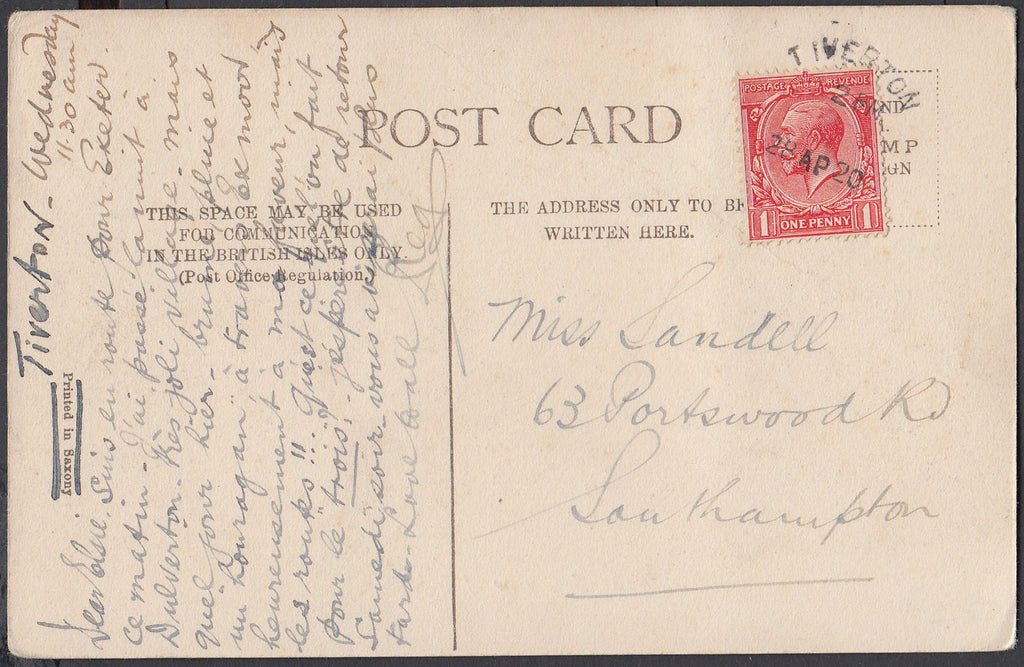 POST CARD
THIS SPACE MAY BE USED
FOR COMMUNICATION
IN THE BRITISH ISLES ONLY.
(Post Office Regulation.)
THE ADDRESS ONLY TO BE
WRITTEN HERE.
TIVERTON
28 AP 20
POSTAGE REVENUE
1 ONE PENNY 1
ND
MP
GN
Printed in Saxony
Tiverton - Wednesday
11.30 am
Dear Elsie. Suis en route pour Exeter
ce matin - J'ai passé la nuit à
Dulverton. très joli village - mais
quel jour hier - brume pluie et
un houragan à travers Exmoor
heureusement à ma faveur, mais
les routes!! qu'est ce qu'on fait
pour le trois, j'espère de retour
Samedi soir - vous avez ai
tard - Love to all
Reg
Miss Sandell
63 Portswood Rd
Southampton